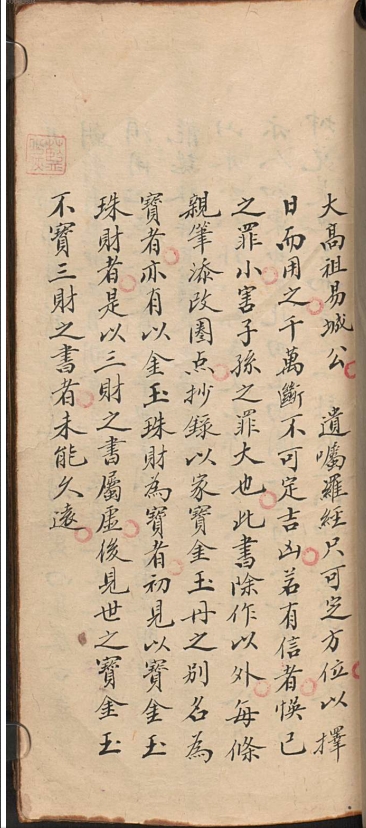 大高祖易城公　遺囑羅經只可定方位以擇
日而用之千萬斷不可定吉凶若有信者悞已
之罪小害子孫之罪大也此書除作以外每條
親筆添改圈点抄錄以家寶金玉丹之别名為
寶者亦有以金玉珠財為寶者初見以寶金玉
珠財者是以三財之書屬虛後見世之寶金玉
不寶三財之書者未能久遠